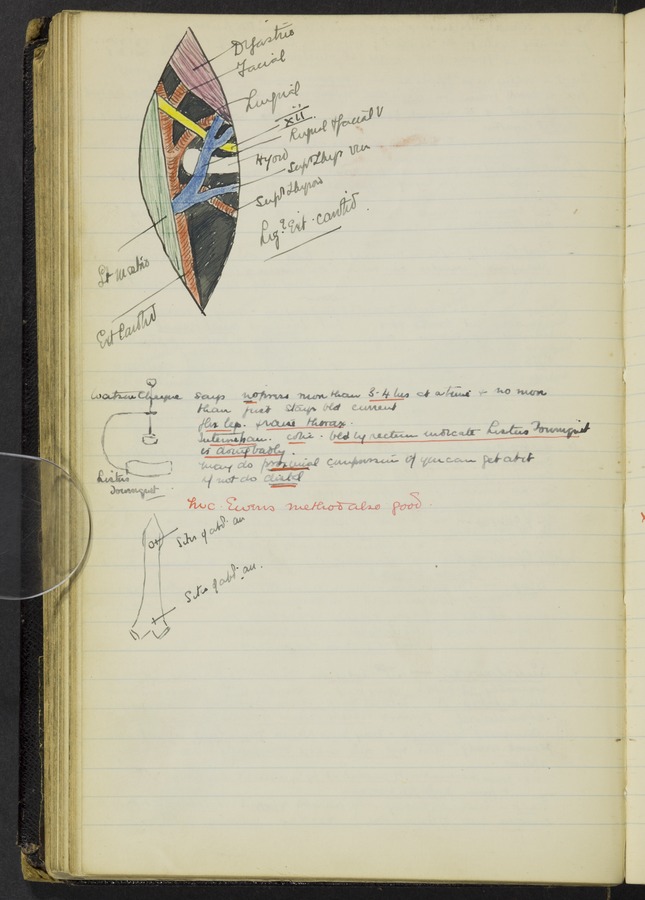 Digastric
Facial
Lingual
XII
Lingual & facial V
Hyoid
Supr Thyr vein
Supr Thyroid
Ligre Ext. carotid.
St mastoid
Ext Carotid
Watson Cheyne says no press more than 3-4 hrs at a time & no more
than just stops bld current
flex leg. & raise thorax.
colic. bld by rectum indicate Listers Tourniquet
is doing badly.
may do proximal compression if you can get at it
if not do distal
Listers
Tourniquet
method also good.
Sites of abd. an
Sites of abd. an.